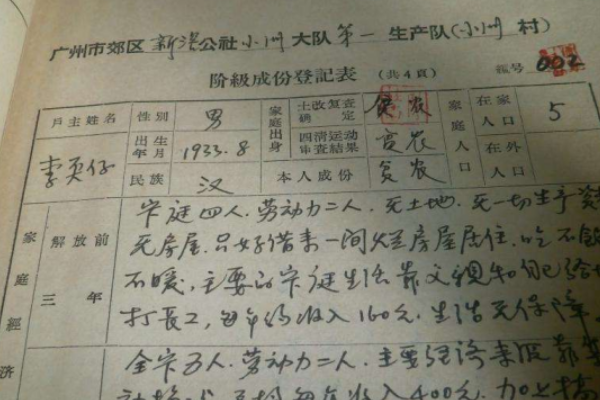 广州市郊区新滘公社小洲大队第一生产队(小洲村)
阶級成份登記表 (共4頁) 編号 002
戶主姓名 性别 男 家庭出身 土改复查确定 貧农 家庭人口 在家人口 5
李英仔 出生年月 1933.8 四清运动审查結果 貧农 在外人口
民族 汉 本人成份 貧农
家庭經济 解放前三年 家庭四人.劳动力二人.无土地.无一切生产資
无房屋.只好借来一间烂房屋居住.吃不飽
不暖,主要的家庭生活靠父親和自己給
打長工,每年約收入160元.生活无保障.
全家五人.劳动力二人.主要經济来源靠
每年收入400元.加上搞